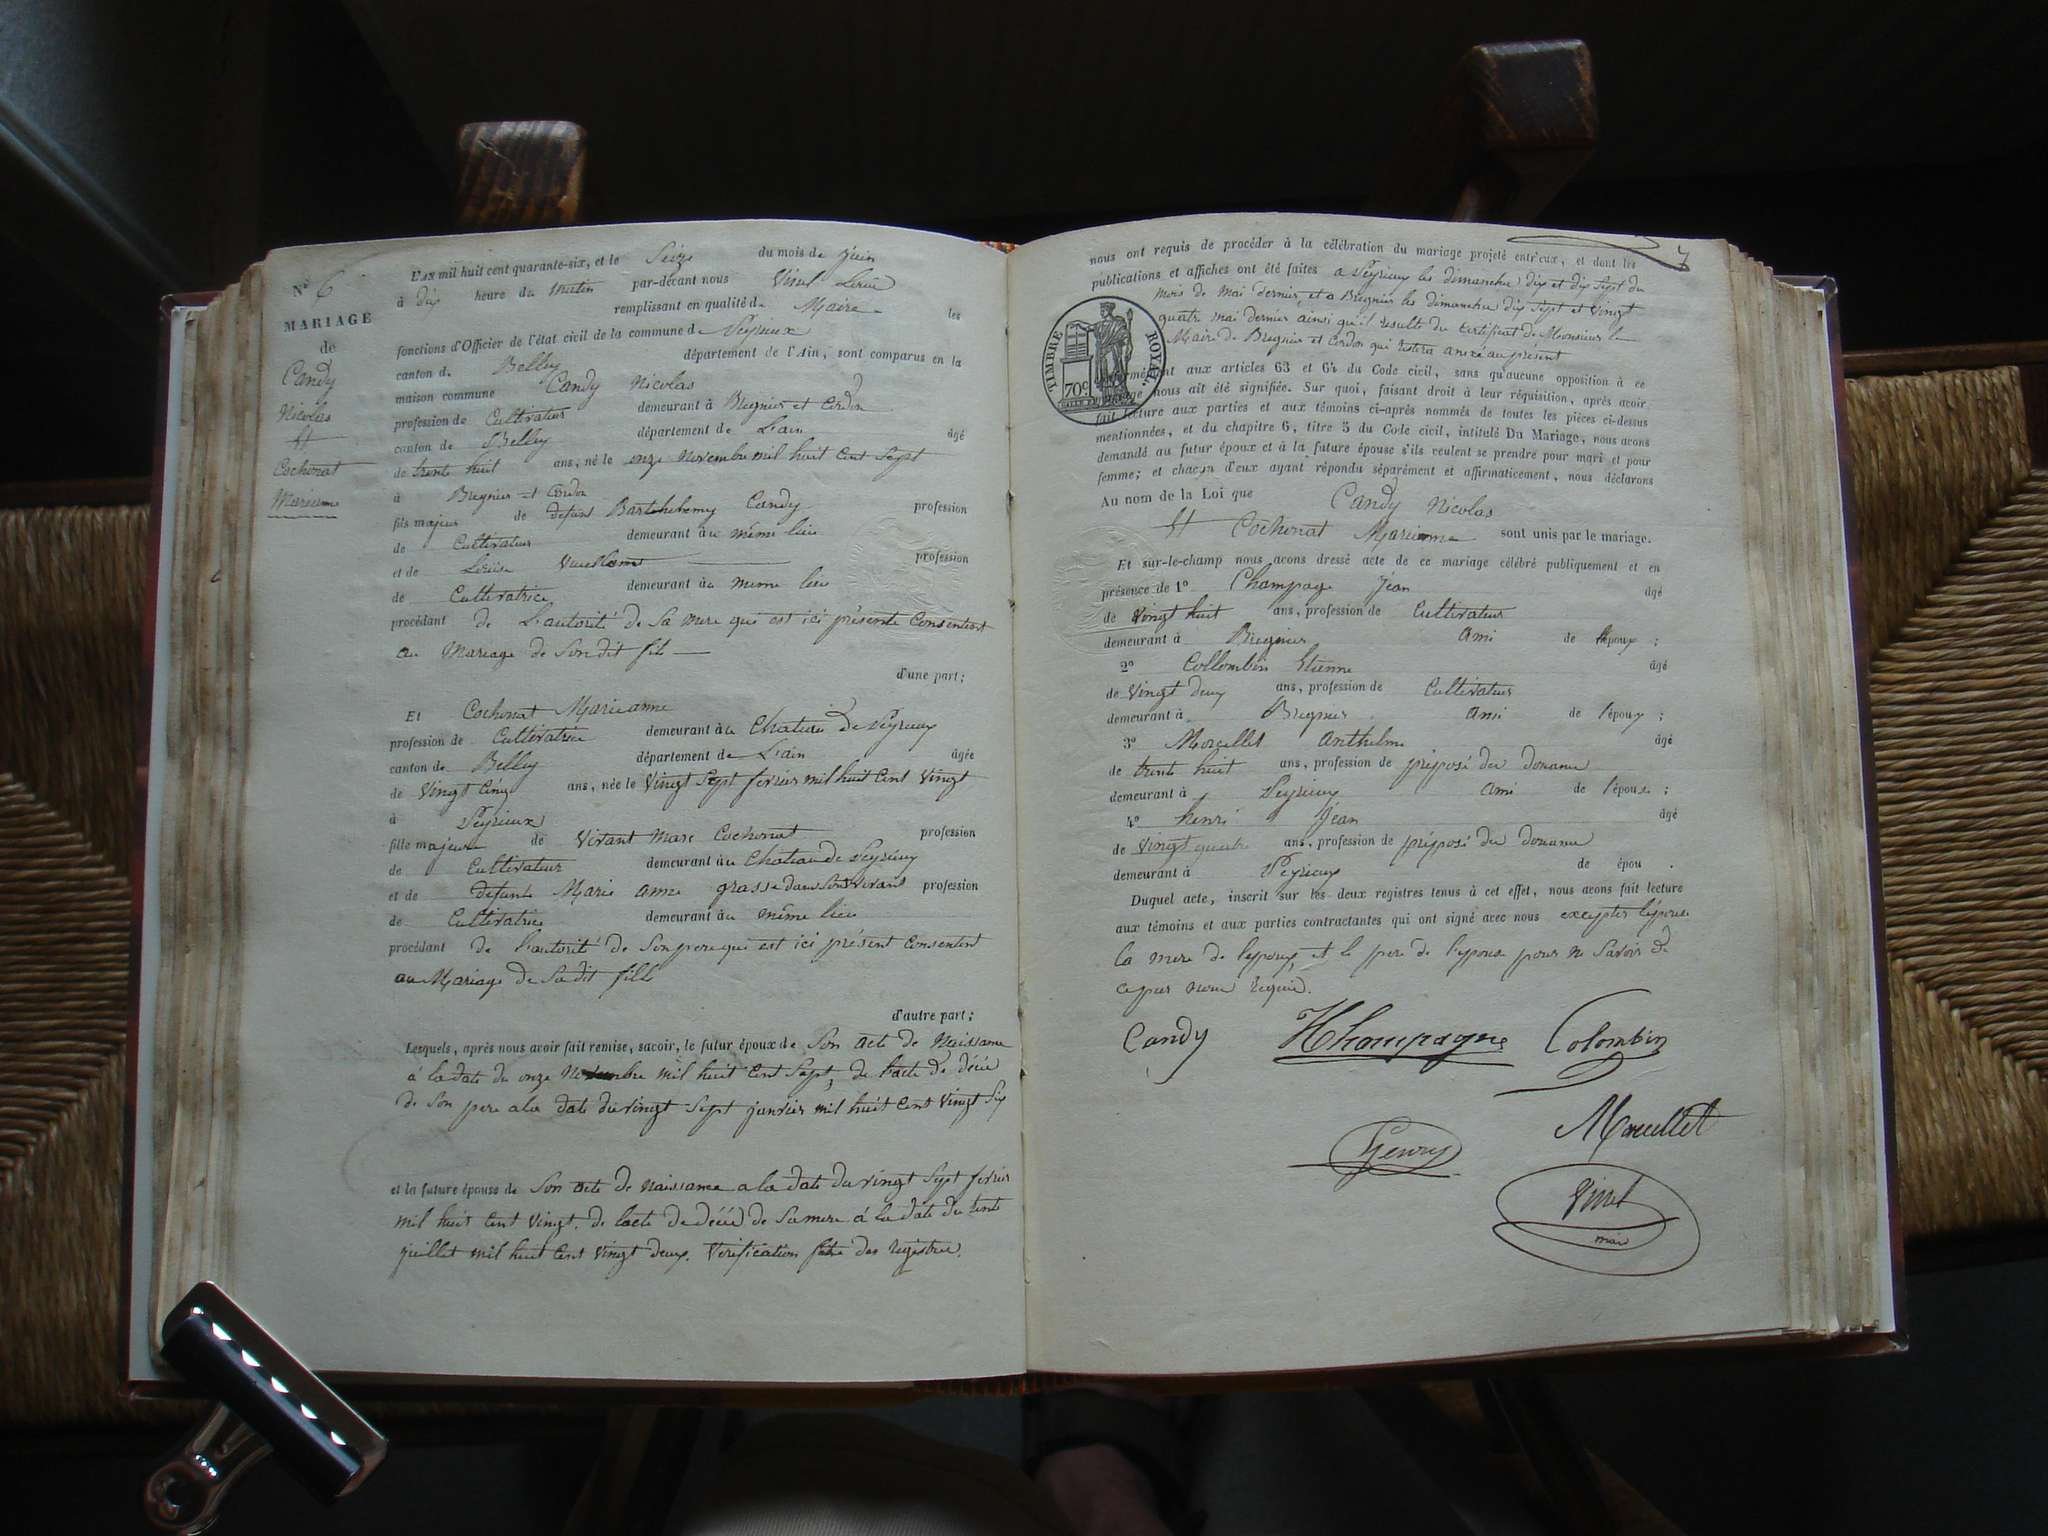 N° 6
MARIAGE
de
Candy
Nicolas
et
Cochonat
Marieanne
L'AN mil huit cent quarante-six, et le Seize du mois de juin
à dix heure du matin par-devant nous Vinet
remplissant en qualité de Maire les
fonctions d'Officier de l'état civil de la commune d Peyrieux
canton de Belley département de l'Ain, sont comparus en la
maison commune Candy Nicolas
profession de Cultivateur demeurant à Bregnier et Cordon
canton de Belley département de L'ain âgé
de trente huit ans, né le onze Novembre mil huit Cent Sept
à Bregnier et Cordon
fils majeur de defunt Barthelemy Candy profession
de Cultivateur demeurant au même lieu
et de Louise profession
de Cultivatrice demeurant au même lieu
procédant de L'autorité de Sa mere qui est ici présente Consentant
au Mariage de Son dit fils
d'une part;
Et Cochonat Marieanne
profession de Cultivatrice demeurant au Chateau de Peyrieux
canton de Belley département de L'ain âgée
de Vingt Cinq ans, née le Vingt Sept fevrier mil huit Cent Vingt
à Peyrieux
fille majeure de Vivant Marc Cochonat profession
de Cultivateur demeurant au Chateau de Peyrieux
et de defunte Marie anne grasse dans Son vivant profession
de Cultivatrice demeurant au même lieu
procédant de L'autorité de Son pere qui est ici présent Consentent
au Mariage de Sa dit fille
d'autre part;
Lesquels, après nous avoir fait remise, savoir, le futur époux de Son acte de Naissance
à la date du onze Novembre mil huit Cent Sept, de l'acte de décè
de Son pere a la date du vingt Sept janvier mil huit Cent Vingt Six
et la future épouse de Son acte de naissance a la date du vingt Sept fevrier
mil huit Cent Vingt. de l'acte de décé de Sa mere à la date du trente
juillet mil huit Cent Vingt deux. Verification faite des registres.
7
nous ont requis de procéder à la célébration du mariage projeté entr'eux, et dont les
publications et affiches ont été faites a Peyrieux les dimanches dix et dix Sept du
mois de mai dernier, et a Bregnier les dimanches dix Sept et Vingt
quatre mai dernier ainsi qu'il resulte du Certificat de Monsieur le
Maire de Bregnier et Cordon qui restera anexé au présent
TIMBRE ROYAL.
70c
conformément aux articles 63 et 64 du Code civil, sans qu'aucune opposition à ce
mariage nous ait été signifiée. Sur quoi, faisant droit à leur réquisition, après avoir
fait lecture aux parties et aux témoins ci-après nommés de toutes les pièces ci-dessus
mentionnées, et du chapitre 6, titre 5 du Code civil, intitulé Du Mariage, nous avons
demandé au futur époux et à la future épouse s'ils veulent se prendre pour mari et pour
femme; et chacun d'eux ayant répondu séparément et affirmativement, nous déclarons
Au nom de la Loi que Candy Nicolas
et Cochonat Marieanne sont unis par le mariage.
Et sur-le-champ nous avons dressé acte de ce mariage célébré publiquement et en
présence de 1° Champage Jean âgé
de Vingt huit ans, profession de Cultivateur
demeurant à Bregnier ami de l'époux;
2° Collombin Etienne âgé
de Vingt deux ans, profession de Cultivateur
demeurant à Bregnier ami de l'époux;
3° Morcellet Anthelme âgé
de trente huit ans, profession de préposé des douanes
demeurant à Peyrieux ami de l'épouse;
4° henri Jean âgé
de Vingt quatre ans, profession de préposé des douanes
demeurant à Peyrieux de épou .
Duquel acte, inscrit sur les deux registres tenus à cet effet, nous avons fait lecture
aux témoins et aux parties contractantes qui ont signé avec nous excepter l'épouse
la mere de l'epoux, et le pere de l'epouse pour ne Savoir de
ce par nous requis.
Candy Champagne Colombin
Morcellet
henry
Vinet
maire